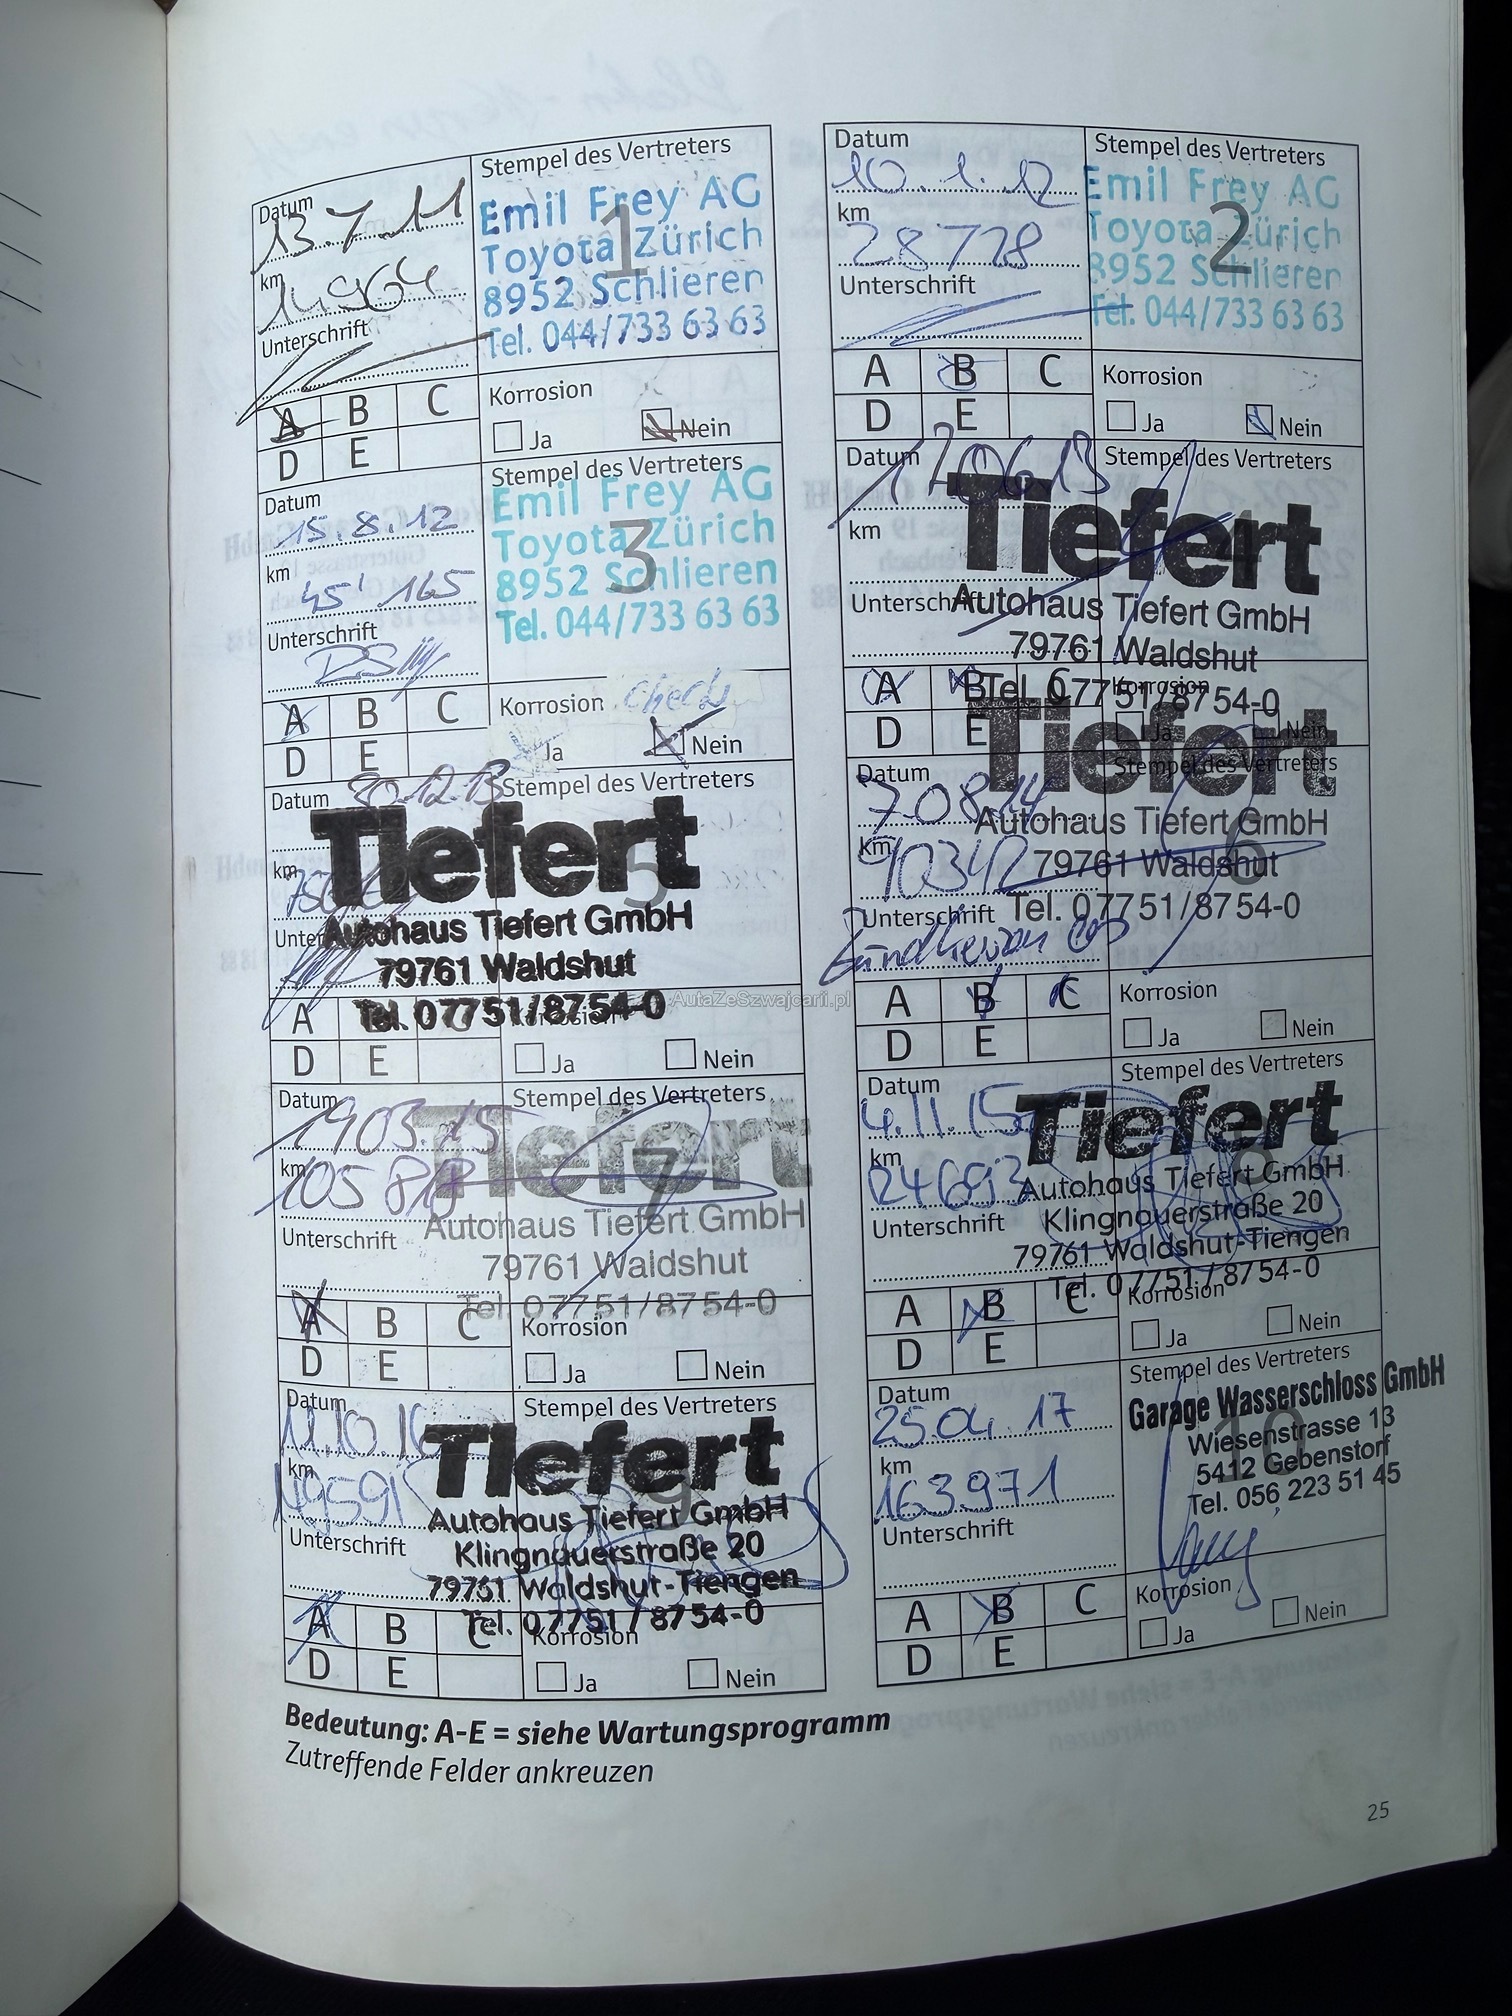 Datum
13.7.11
Stempel des Vertreters
Emil Frey AG
Toyota Zürich
8952 Schlieren
Tel. 044/733 63 63
1
km
14964
Unterschrift
A B C
D E
Korrosion
Ja Nein
Datum
10.1.12
Stempel des Vertreters
Emil Frey AG
Toyota Zürich
8952 Schlieren
Tel. 044/733 63 63
2
km
28728
Unterschrift
A B C
D E
Korrosion
Ja Nein
Datum
15.8.12
Stempel des Vertreters
Emil Frey AG
Toyota Zürich
8952 Schlieren
Tel. 044/733 63 63
3
km
45'165
Unterschrift
A B C
D E
Korrosion check
Ja Nein
Datum
Stempel des Vertreters
Tiefert
4
km
Unterschrift
Autohaus Tiefert GmbH
79761 Waldshut
Tel. 07751/8754-0
A B C
D E
Korrosion
Ja Nein
Datum
30.12.13
Stempel des Vertreters
Tiefert
5
km
Unterschrift
Autohaus Tiefert GmbH
79761 Waldshut
Tel. 07751/8754-0
A
D E
Korrosion
Ja Nein
Datum
7.08.14
Stempel des Vertreters
Tiefert
Autohaus Tiefert GmbH
79761 Waldshut
Tel. 07751/8754-0
6
km
90342
Unterschrift
Zündkerzen
A B C
D E
Korrosion
Ja Nein
AutaZeSzwajcarii.pl
Datum
19.03.15
Stempel des Vertreters
Tiefert
7
km
105 818
Unterschrift
Autohaus Tiefert GmbH
79761 Waldshut
Tel. 07751/8754-0
A B C
D E
Korrosion
Ja Nein
Datum
4.11.15
Stempel des Vertreters
Tiefert
8
km
124693
Unterschrift
Autohaus Tiefert GmbH
Klingnauerstraße 20
79761 Waldshut-Tiengen
Tel. 07751 / 8754-0
A B C
D E
Korrosion
Ja Nein
Datum
11.10.16
Stempel des Vertreters
Tiefert
9
km
149591
Unterschrift
Autohaus Tiefert GmbH
Klingnauerstraße 20
79761 Waldshut-Tiengen
Tel. 07751 / 8754-0
A B C
D E
Korrosion
Ja Nein
Datum
25.04.17
Stempel des Vertreters
Garage Wasserschloss GmbH
Wiesenstrasse 13
5412 Gebenstorf
Tel. 056 223 51 45
10
km
163.971
Unterschrift
A B C
D E
Korrosion
Ja Nein
Bedeutung: A-E = siehe Wartungsprogramm
Zutreffende Felder ankreuzen
25